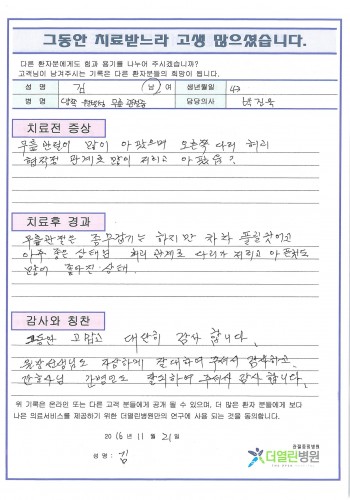 그동안 치료받느라 고생 많으셨습니다.
다른 환자분에게도 힘과 용기를 나누어 주시겠습니까?
고객님이 남겨주시는 기록은 다른 환자분들의 희망이 됩니다.
성 명 김 남 여 생년월일 43
병 명 양쪽 무릎 관절증 담당의사 박진욱
치료전 증상
무릎 관절이 많이 아팠으며 오른쪽 다리 허리
협착적 관계로 많이 저리고 아팠음?
치료후 경과
무릎관절은 좀 무겁기는 하지만 차차 풀릴것이고
아주 좋은 상태임 허리 관계로 다리가 저리고 아픈것도
많이 좋아진 상태.
감사와 칭찬
그동안 고맙고 대단히 감사 합니다.
원장선생님도 자상하게 잘 대하여 주셔서 감사하고,
간호사님 간병인도 잘 하여 주셔서 감사 합니다.
위 기록은 온라인 또는 다른 고객 분들에게 공개 될 수 있으며, 더 많은 환자 분들에게 보다
나은 의료서비스를 제공하기 위한 더열린병원만의 연구에 사용 되는 것을 동의합니다.
2016년 11월 21일
성 명 : 김
관절중점병원
더열린병원